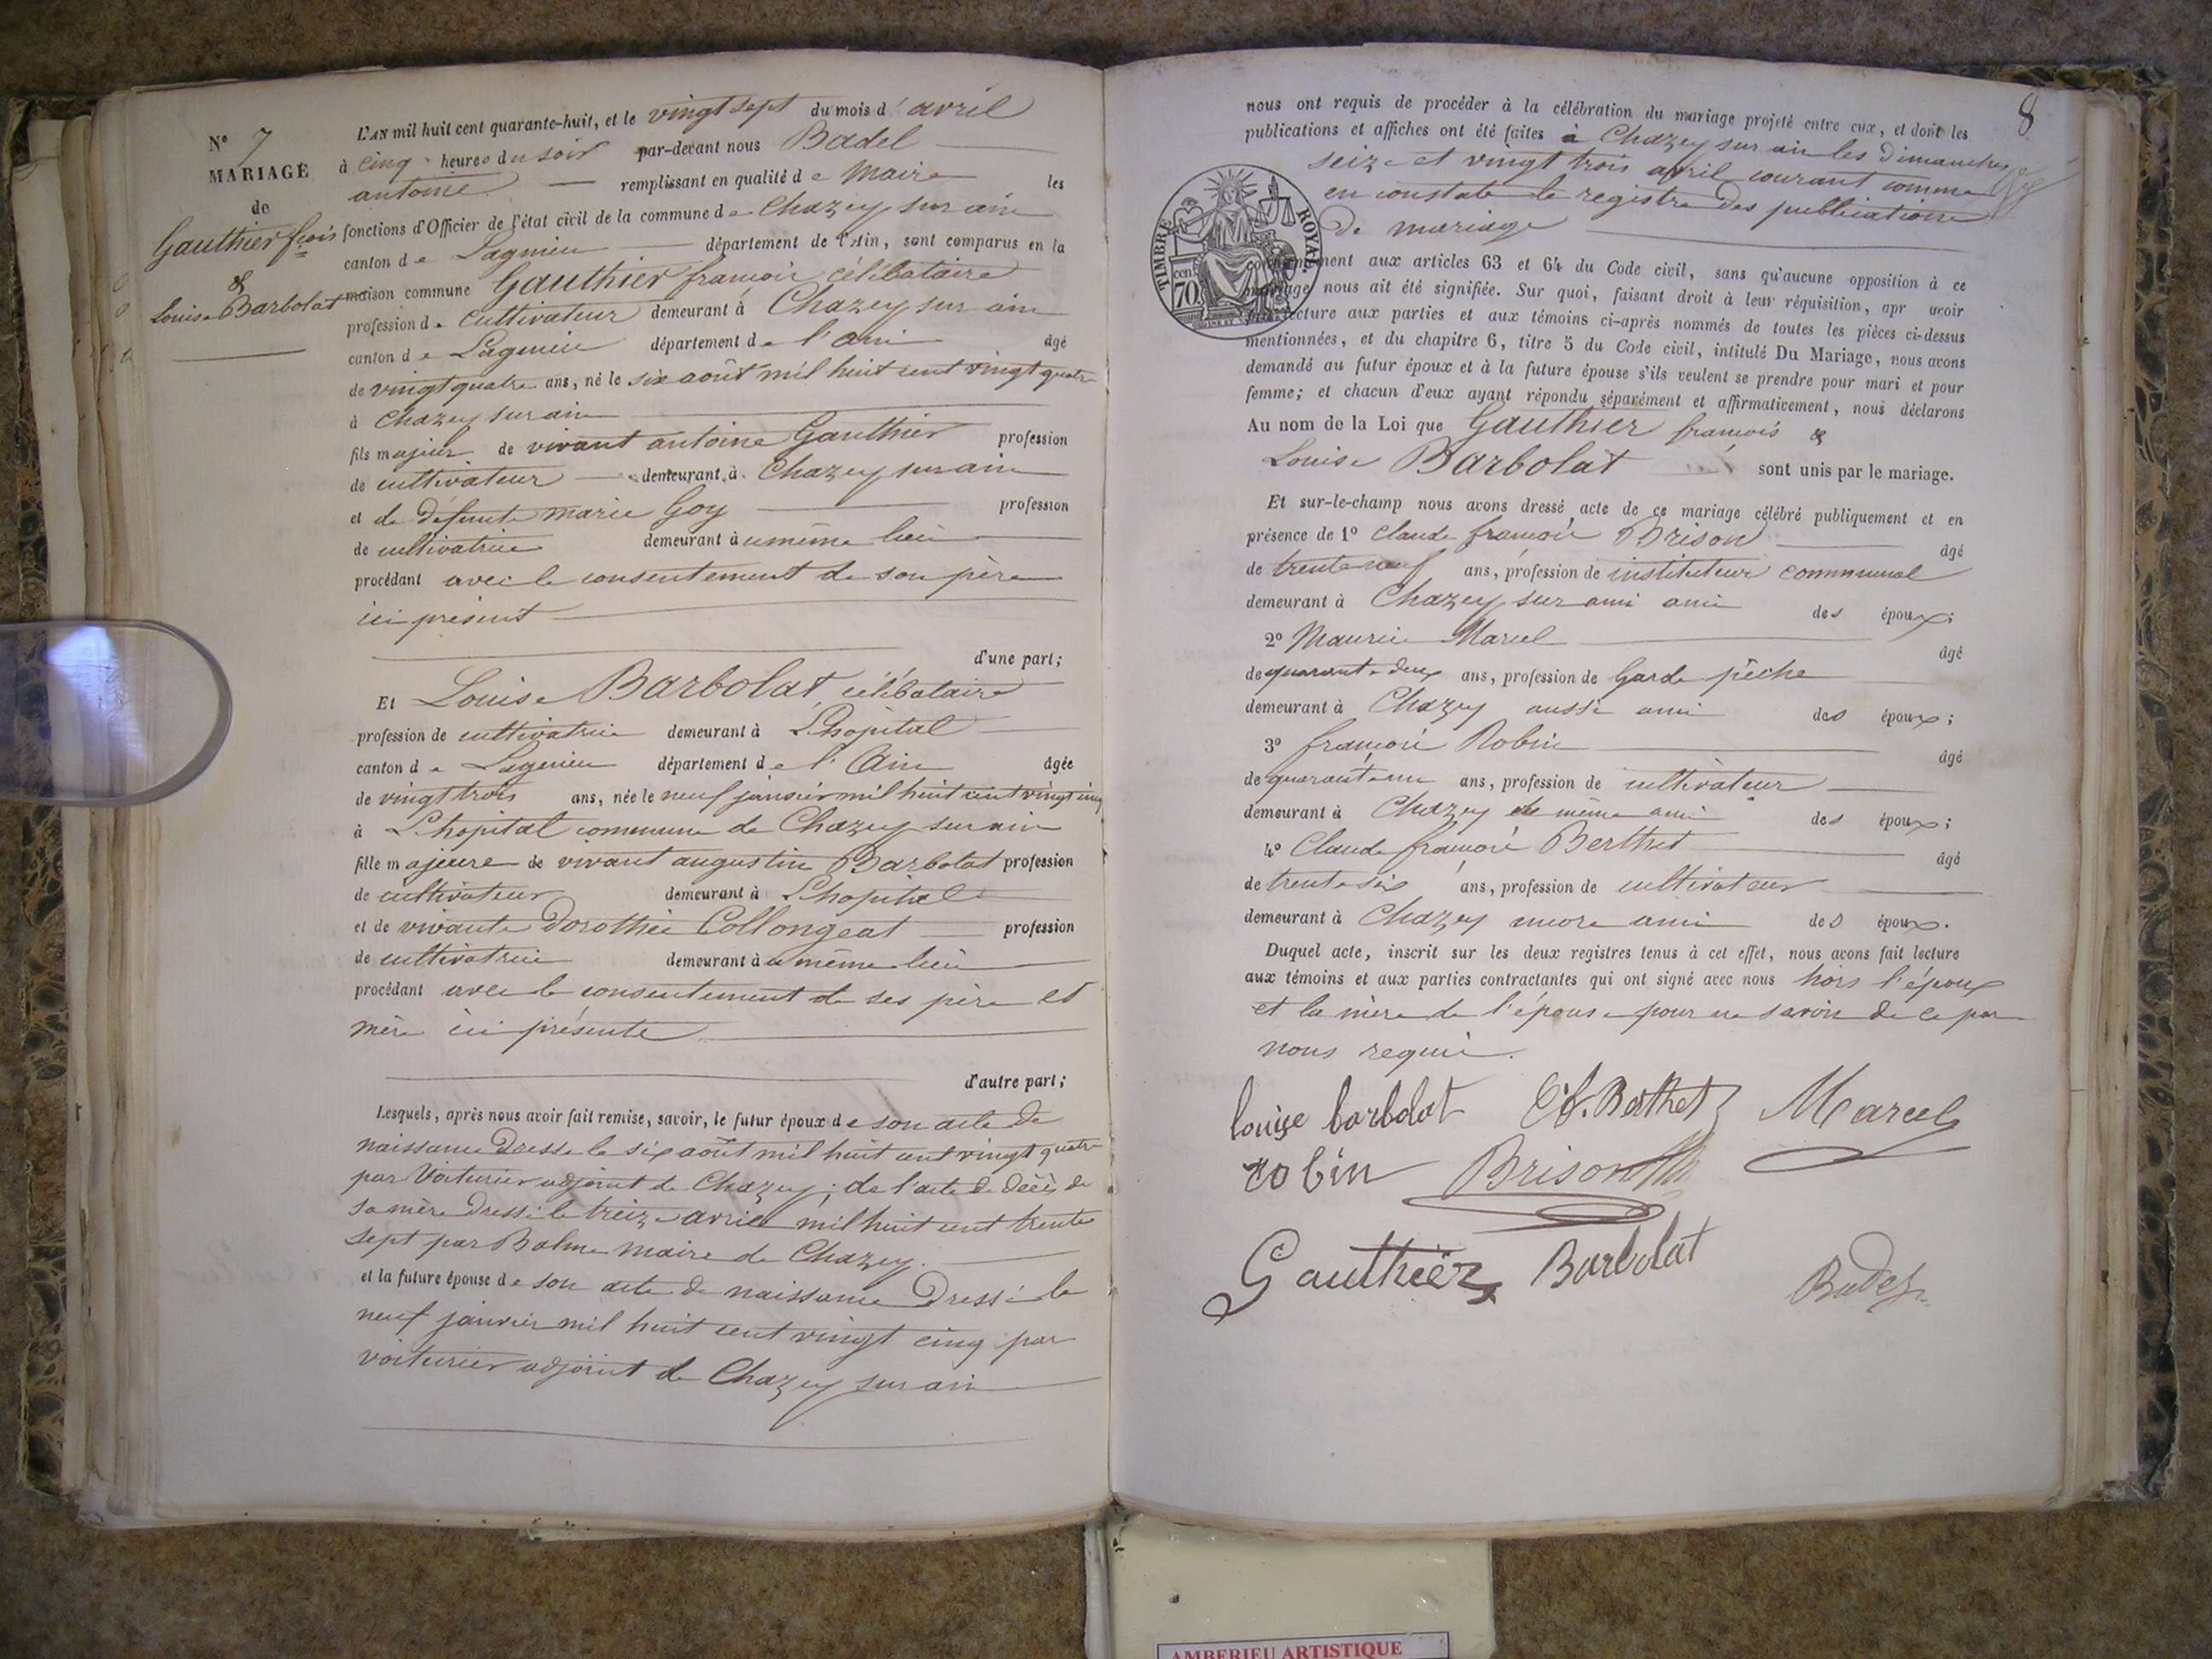 N° 7
MARIAGE
de
Gauthier fçois
&
Louise Barbolat
L'AN mil huit cent quarante-huit, et le vingt sept du mois d'avril
à cinq heures du soir par-devant nous Badel
antoine remplissant en qualité de Maire les
fonctions d'Officier de l'état civil de la commune de Chazey sur ain
canton de Lagnieu département de l'Ain, sont comparus en la
maison commune Gauthier françois célibataire
profession de cultivateur demeurant à Chazey sur ain
canton de Lagnieu département de l'ain âgé
de vingt quatre ans, né le six août mil huit cent vingt quatre
à Chazey sur ain
fils majeur de vivant antoine Gauthier profession
de cultivateur demeurant à Chazey sur ain
et de défunte marie Goy profession
de cultivatrice demeurant au même lieu
procédant avec le consentement de son père
ici présent
d'une part;
Et Louise Barbolat, célibataire
profession de cultivatrice demeurant à L'hopital
canton de Lagnieu département de l'Ain âgée
de vingt trois ans, née le neuf janvier mil huit cent vingt cinq
à L'hopital commune de Chazey sur ain
fille majeure de vivant augustin Barbolat profession
de cultivateur demeurant à L'hopital
et de vivante Dorothée Collongeat profession
de cultivatrice demeurant au même lieu
procédant avec le consentement de ses père et
mère ici présents
d'autre part;
Lesquels, après nous avoir fait remise, savoir, le futur époux de son acte de
naissance dressé le six août mil huit cent vingt quatre
par Voiturier adjoint de Chazey; de l'acte de décès de
sa mère dressé le treize avril mil huit cent trente
sept par Balme maire de Chazey.
et la future épouse de son acte de naissance Dressé le
neuf janvier mil huit cent vingt cinq par
voiturier adjoint de Chazey sur ain
8
nous ont requis de procéder à la célébration du mariage projeté entre eux, et dont les
publications et affiches ont été faites à Chazey sur ain les dimanches
seize et vingt trois avril courant comme
en constate le registre des publications
de mariage
TIMBRE ROYAL
70 cen
conformément aux articles 63 et 64 du Code civil, sans qu'aucune opposition à ce
mariage nous ait été signifiée. Sur quoi, faisant droit à leur réquisition, apr avoir
lecture aux parties et aux témoins ci-après nommés de toutes les pièces ci-dessus
mentionnées, et du chapitre 6, titre 5 du Code civil, intitulé Du Mariage, nous avons
demandé au futur époux et à la future épouse s'ils veulent se prendre pour mari et pour
femme; et chacun d'eux ayant répondu séparément et affirmativement, nous déclarons
Au nom de la Loi que Gauthier françois &
Louise Barbolat sont unis par le mariage.
Et sur-le-champ nous avons dressé acte de ce mariage célébré publiquement et en
présence de 1° Claude françois Brison âgé
de trente neuf ans, profession de instituteur communal
demeurant à Chazey sur ain ami des époux;
2° Maurice Marcel âgé
de quarante deux ans, profession de Garde pêche
demeurant à Chazey aussi ami des époux;
3° françois Robin âgé
de quarante un ans, profession de cultivateur
demeurant à Chazey de même ami des époux;
4° Claude françois Berthet âgé
de trente six ans, profession de cultivateur
demeurant à Chazey encore ami des époux.
Duquel acte, inscrit sur les deux registres tenus à cet effet, nous avons fait lecture
aux témoins et aux parties contractantes qui ont signé avec nous hors l'époux
et la mère de l'épouse pour ne savoir de ce par
nous requis.
louise barbolat Cf. Berthet Marcel
robin Brison
Gauthier Barbolat Badel
AMBERIEU ARTISTIQUE